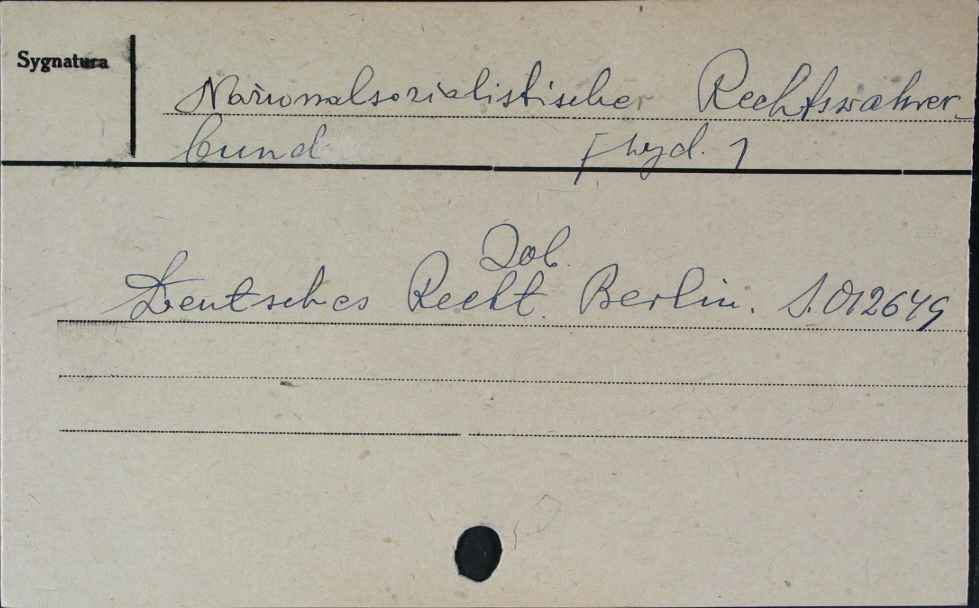 Sygnatura
Nationalsozialistischer Rechtswahrer-
bund [wyd.]
Zob.
Deutsches Recht. Berlin. S.012649